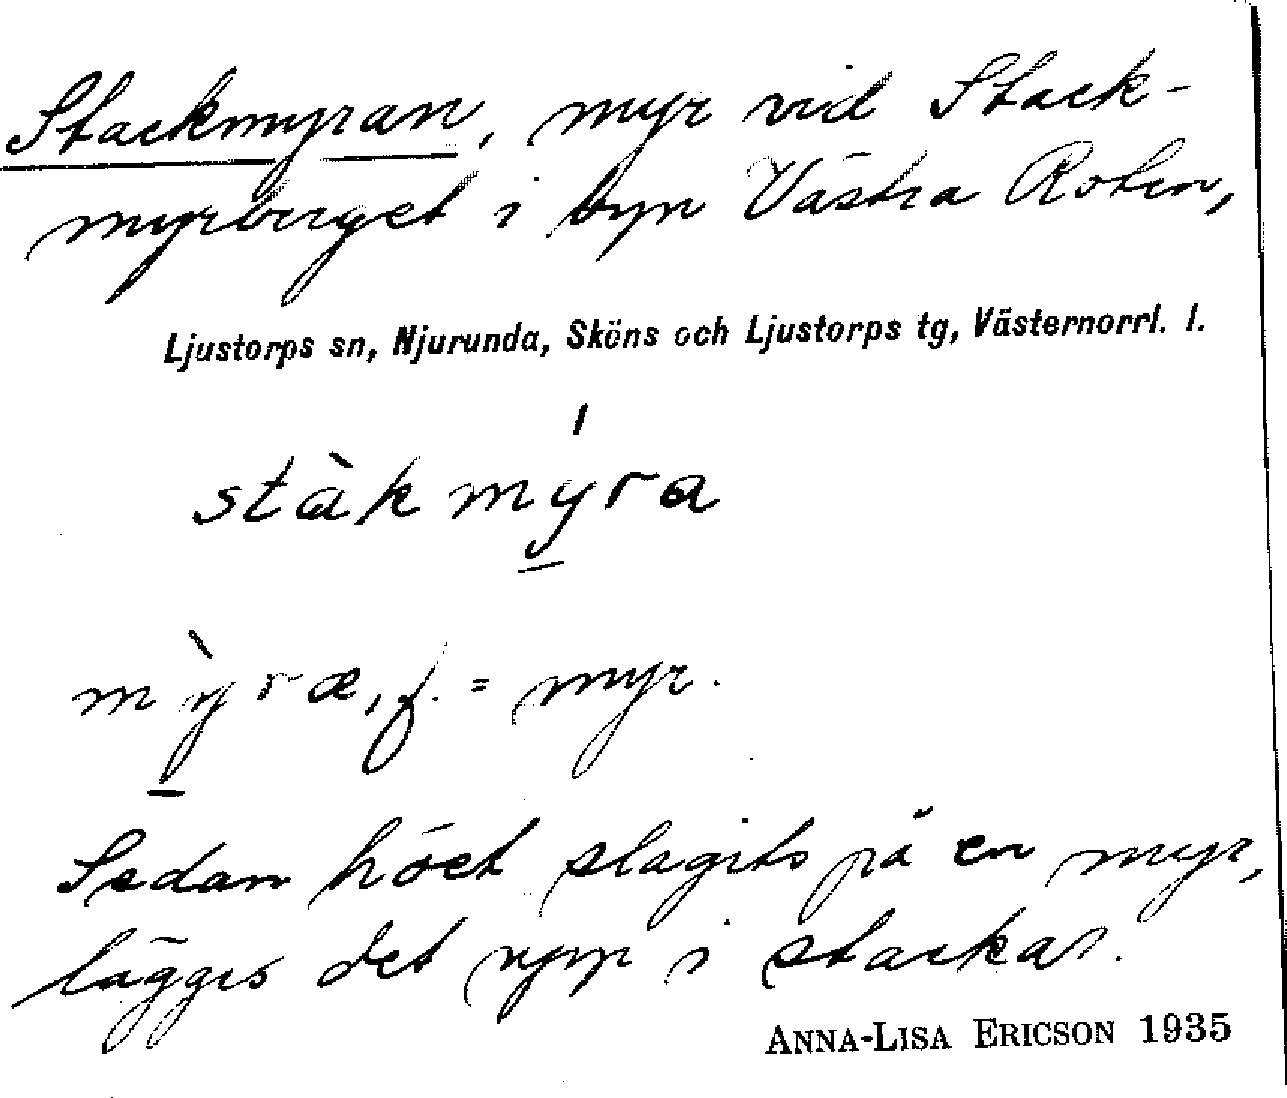 Stackmyran, myr vid Stack-
myrberget i byn Västra Roten,
Ljustorps sn, Njurunda, Sköns och Ljustorps tg, Västernorrl. l.
stàkmýra
mỳræ, f. = myr.
Sedan höet slagits på en myr,
lägges det upp i stackar.
ANNA-LISA ERICSON 1935